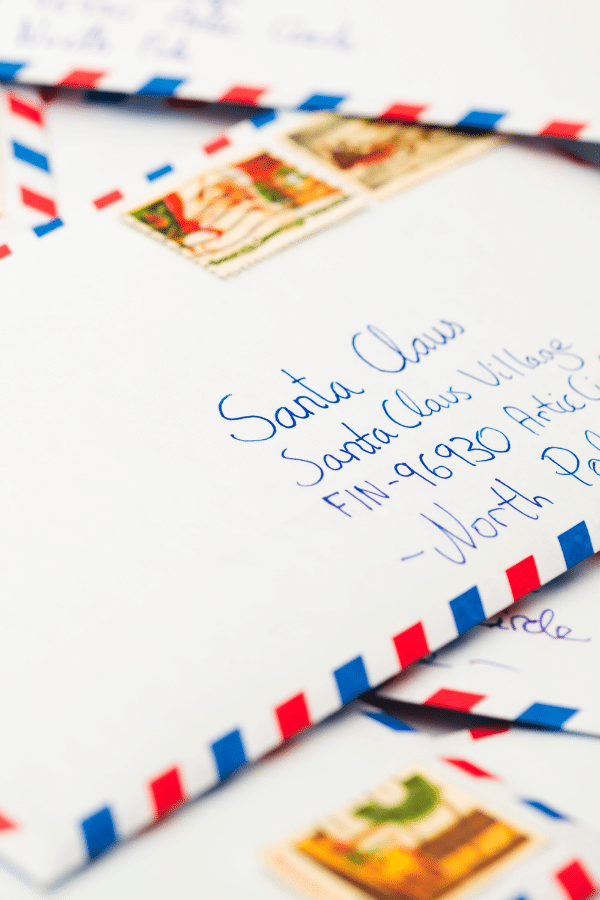 Santa Claus
Santa Claus Village
FIN-96930 Artic Ci
- North Pol
ircle